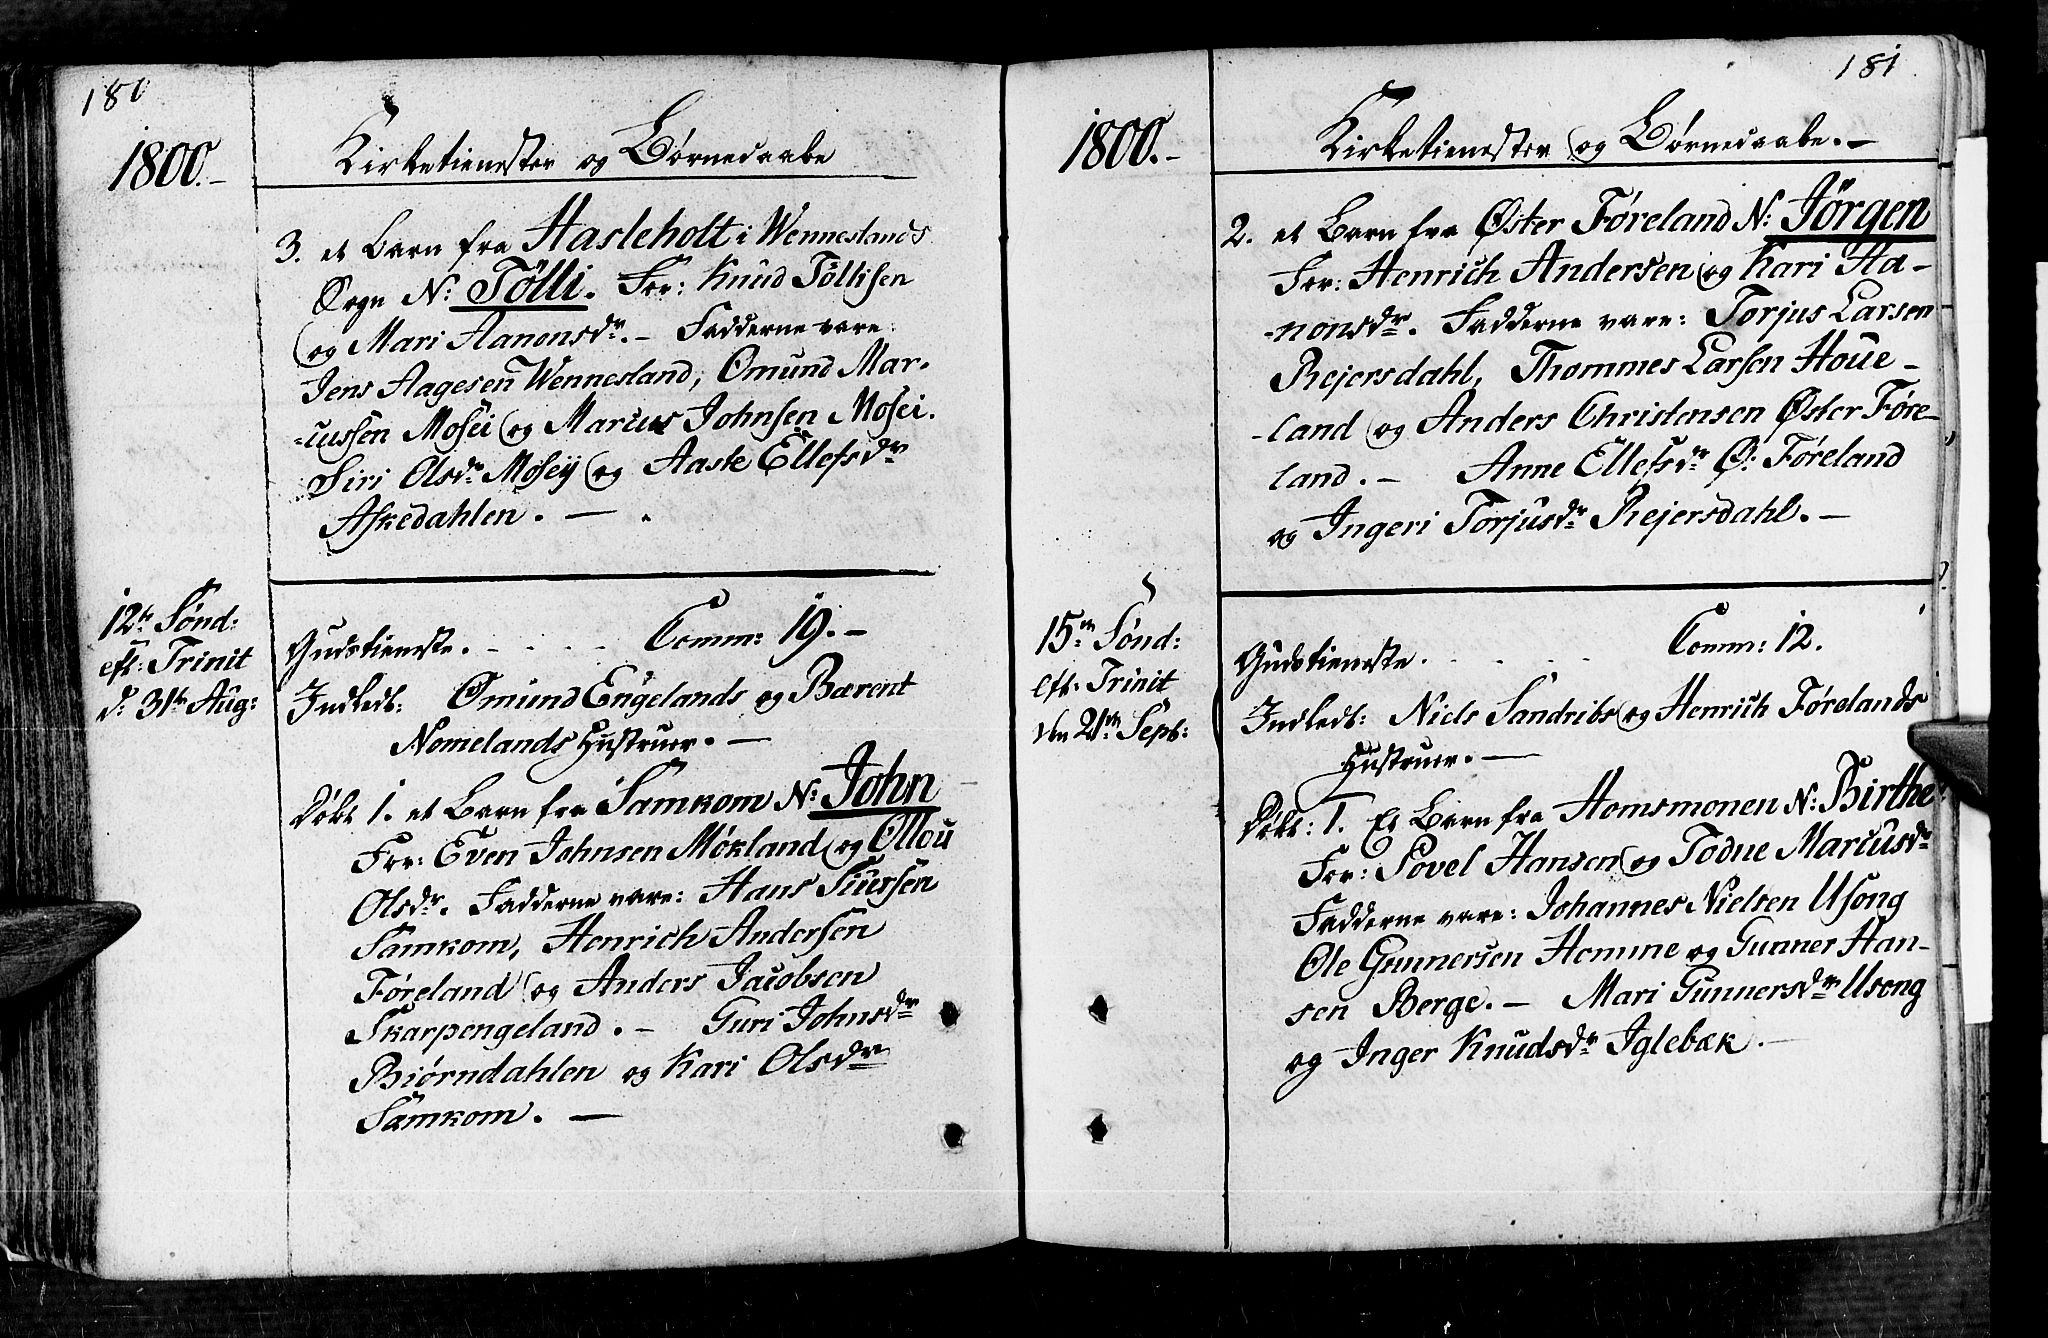 180
1800.-
Kirketienester og Børnedaabe
3. et Barn fra Hasleholt i Wenneslands
Sogn N: Tölli. For: Knud Töllisen
og Mari Aanonsdr. - Fadderne vare:
Jens Aagesen Wennesland, Omund Mar-
-cussen Mosei og Marcus Johnsen Mosei.
Siri Olsdr Mosey og Aaste Ellefsdr
Askedahlen. -
12te Sønd:
eft: Trinit
d: 31te Aug:
Gudstieneste. . . . . Comm: 19. -
Indledt: Omund Engelands og Bærent
Nomelands Hustruer. -
Døbt 1. et Barn fra Samkom N: John
For: Even Johnsen Møkland og Ollou
Olsdr. Fadderne vare: Hans Siursen
Samkom, Henrich Andersen
Føreland og Anders Jacobsen
Skarpengeland. - Guri Johnsdr
Biørndahlen og Kari Olsdr
Samkom. -
181
1800. -
Kirketienester og Børnedaabe. -
2. et Barn fra Øster Føreland N: Jörgen
For: Henrich Andersen og Kari Aa-
-nonsdr. Fadderne vare: Torjus Larsen
Rejersdahl, Thommes Larsen Houe-
-land og Anders Christensen Øster Føre-
land. - Anne Ellefsdr Ø: Føreland
og Ingeri Torjusdr Rejersdahl. -
15de Sønd:
eft: Trinit
den 21de Sept:
Gudstieneste. . . . . Comm: 12.
Indledt: Niels Sandribs og Henrich Førelands
Hustruer. -
Døbt: 1. Et Barn fra Homsmonen N: Birthe
For: Sovel Hansen og Todne Marcusdr
Fadderne vare: Johannes Nielsen Usong
Ole Gunnersen Homme og Gunner Han-
sen Berge. - Mari Gunnersdr Usong
og Inger Knudsdr Iglebæk. -